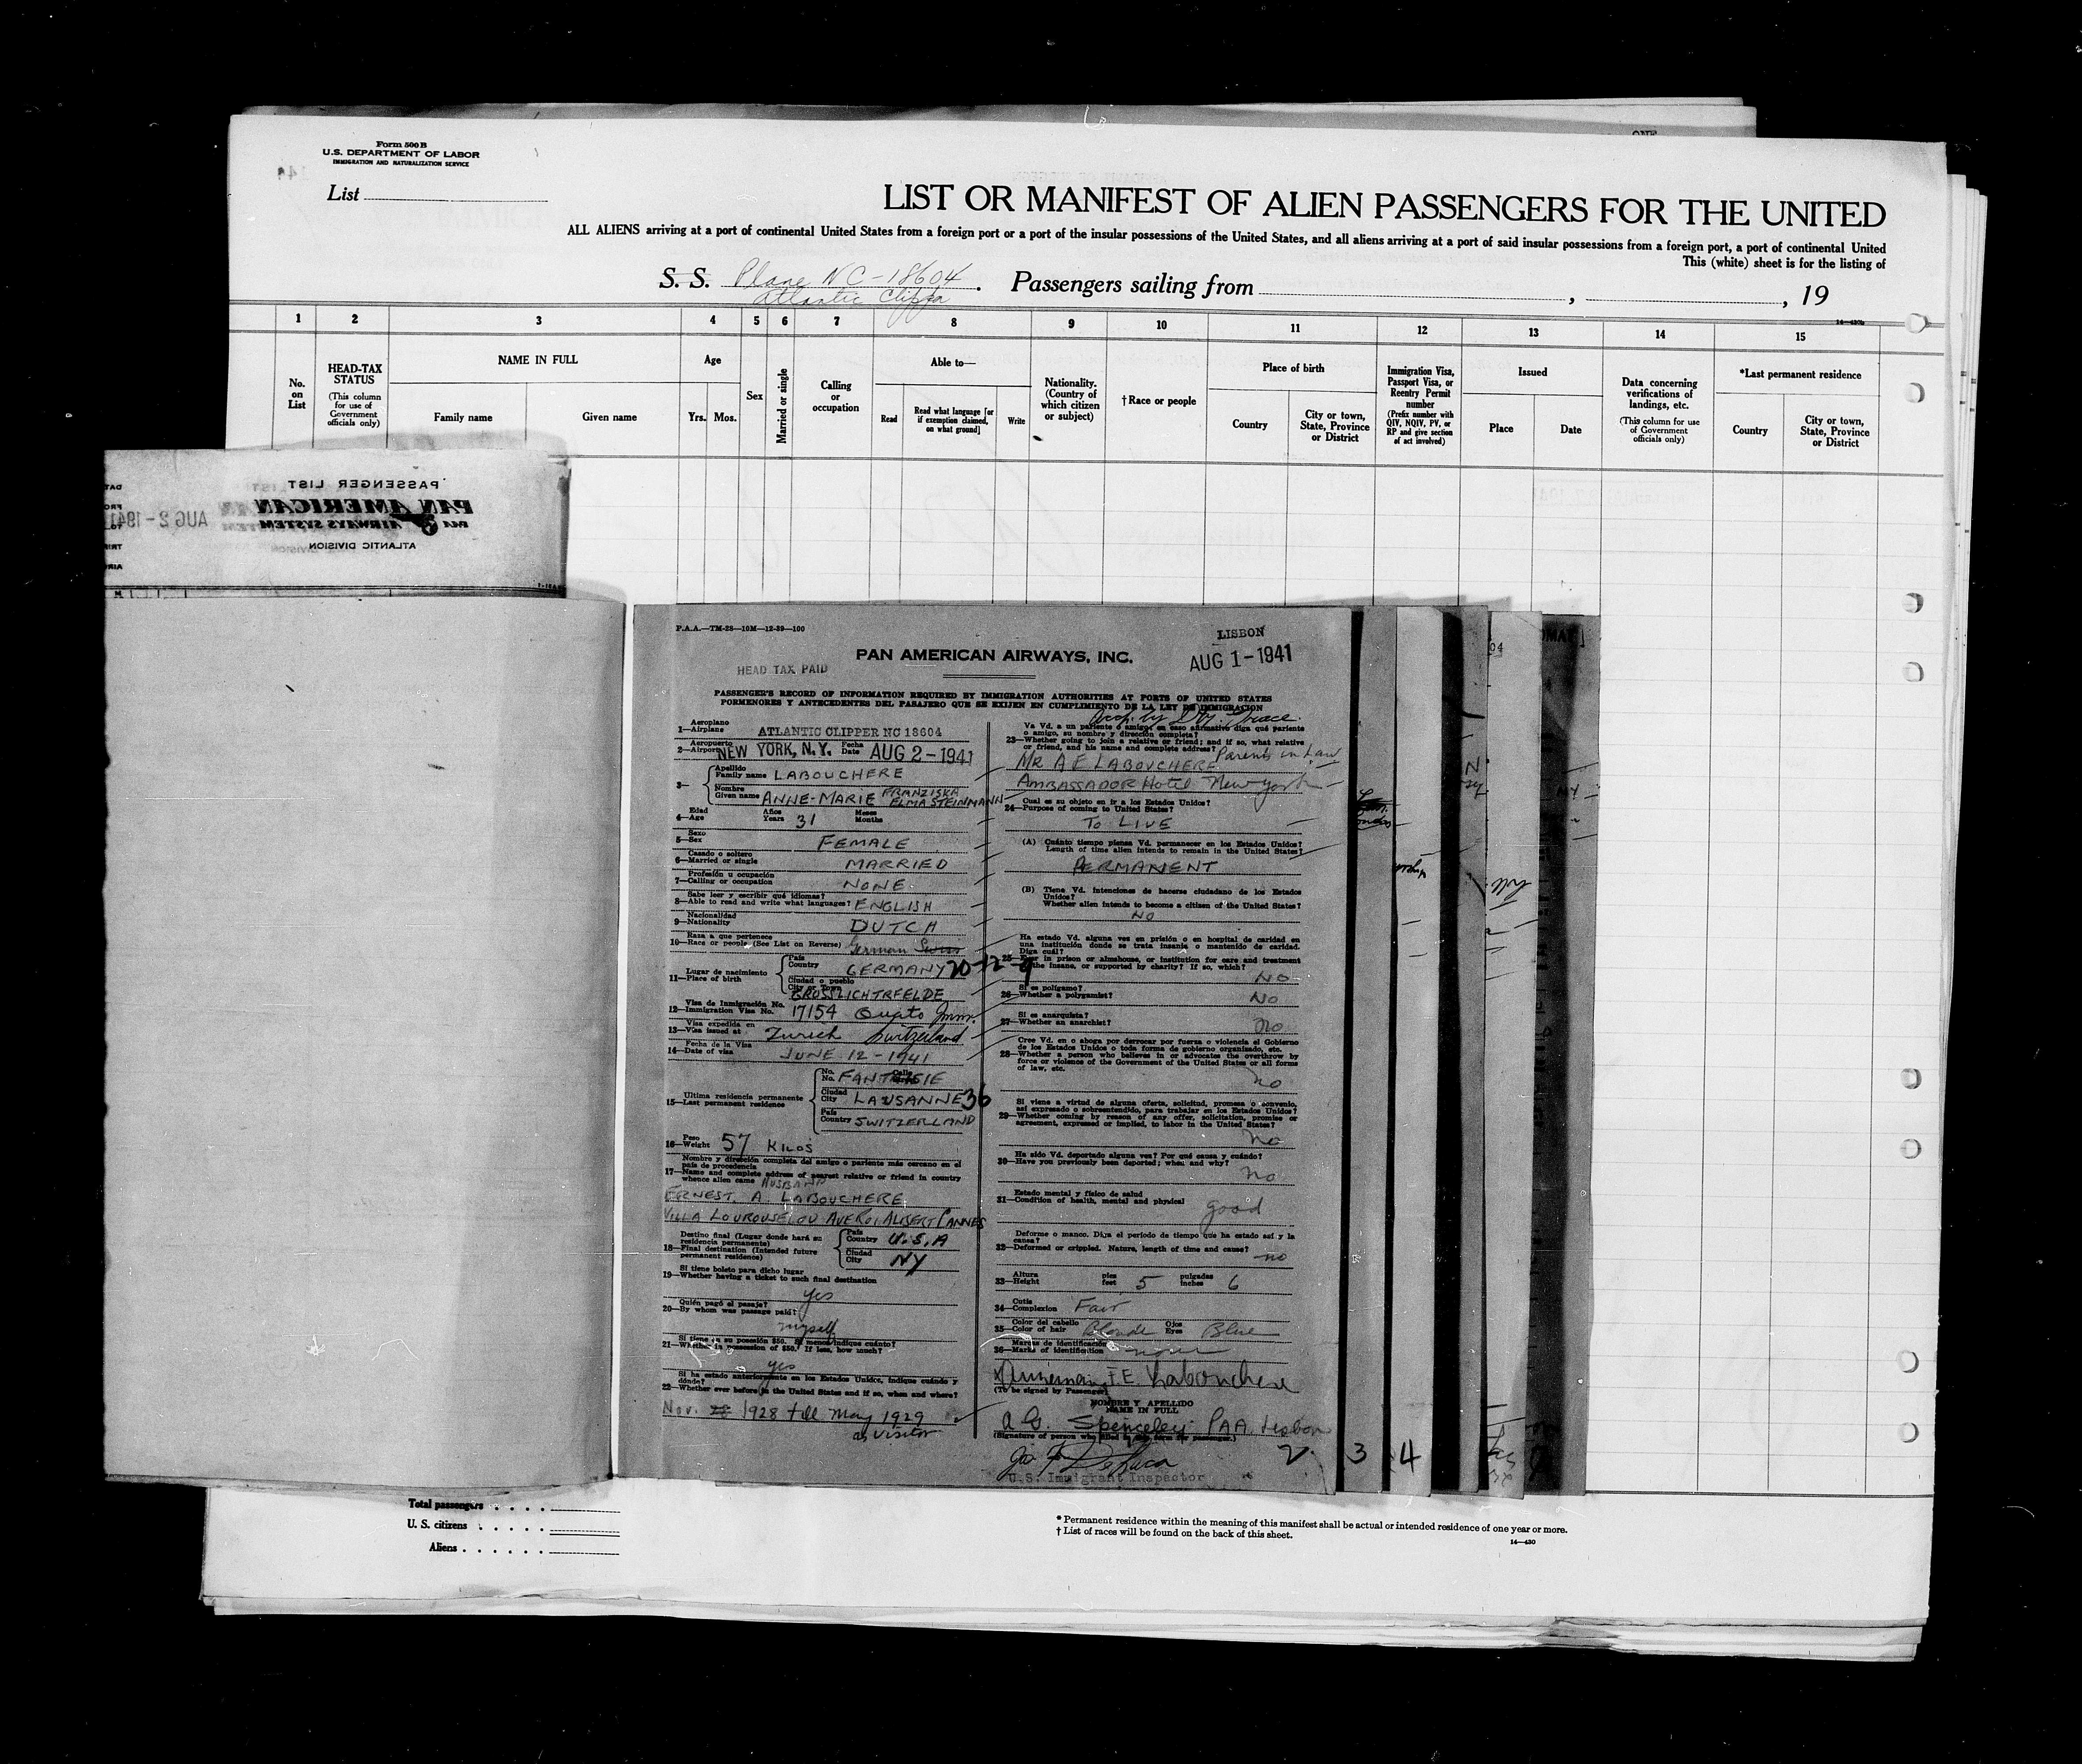 Form 500 B
U.S. DEPARTMENT OF LABOR
IMMIGRATION AND NATURALIZATION SERVICE
List
LIST OR MANIFEST OF ALIEN PASSENGERS FOR THE UNITED
ALL ALIENS arriving at a port of continental United States from a foreign port or a port of the insular possessions of the United States, and all aliens arriving at a port of said insular possessions from a foreign port, a port of continental United
This (white) sheet is for the listing of
S. S. Plane NC-18604
Atlantic Clipper
Passengers sailing from , , 19
14—430b
1 2 3 4 5 6 7 8 9 10 11 12 13 14 15
No. on List
HEAD-TAX STATUS
(This column for use of Government officials only)
NAME IN FULL
Family name
Given name
Age
Yrs. Mos.
Sex
Married or single
Calling or occupation
Able to—
Read
Read what language [or if exemption claimed, on what ground]
Write
Nationality. (Country of which citizen or subject)
†Race or people
Place of birth
Country
City or town, State, Province or District
Immigration Visa, Passport Visa, or Reentry Permit number
(Prefix number with QIV, NQIV, PV, or RP and give section of act involved)
Issued
Place
Date
Data concerning verifications of landings, etc.
(This column for use of Government officials only)
*Last permanent residence
Country
City or town, State, Province or District
PASSENGER LIST
PAN AMERICAN
AIRWAYS SYSTEM
ATLANTIC DIVISION
AUG 2 - 1941
P.A.A.—TM-28—10M—12-39—100
HEAD TAX PAID
PAN AMERICAN AIRWAYS, INC.
LISBON
AUG 1 - 1941
PASSENGER'S RECORD OF INFORMATION REQUIRED BY IMMIGRATION AUTHORITIES AT PORTS OF UNITED STATES
PORMENORES Y ANTECEDENTES DEL PASAJERO QUE SE EXIJEN EN CUMPLIMIENTO DE LA LEY DE IMMIGRACION
Aeroplano
1—Airplane ATLANTIC CLIPPER NC 18604
Aeropuerto
2—Airport NEW YORK, N.Y. Fecha Date AUG 2 - 1941
3— Apellido
Family name LABOUCHERE
Nombre
Given name ANNE-MARIE FRANZISKA
ELMA STEINMANN
Edad
4—Age Años Years 31 Meses Months
Sexo
5—Sex FEMALE
Casado o soltero
6—Married or single MARRIED
Profesión u ocupación
7—Calling or occupation NONE
Sabe leer y escribir qué idiomas?
8—Able to read and write what languages? ENGLISH
Nacionalidad
9—Nationality DUTCH
Raza a que pertenece
10—Race or people (See List on Reverse) German Swiss
Lugar de nacimiento
11—Place of birth
País
Country GERMANY 20-12-9
Ciudad o pueblo
City or Town GROSSLICHTRFELDE
Visa de Inmigración No.
12—Immigration Visa No. 17154 Quota Imm.
Visa expedida en
13—Visa issued at Zurich Switzerland
Fecha de la Visa
14—Date of visa JUNE 12 - 1941
Ultima residencia permanente
15—Last permanent residence
No.
No. FANTAISIE
Ciudad
City LAUSANNE 36
País
Country SWITZERLAND
Peso
16—Weight 57 KILOS
Nombre y dirección completa del amigo o pariente más cercano en el
país de procedencia
17—Name and complete address of nearest relative or friend in country
whence alien came HUSBAND
ERNEST. A. LABOUCHERE
VILLA LOUROUSELOU AVE ROI ALBERT CANNES
Destino final (Lugar donde hará su
residencia permanente)
18—Final destination (Intended future
permanent residence)
País
Country U.S.A
Ciudad
City NY
Si tiene boleto para dicho lugar
19—Whether having a ticket to such final destination
yes
Quién pagó el pasaje?
20—By whom was passage paid?
myself
Si tiene en su posesión $50. Si menos indique cuánto?
21—Whether in possession of $50. If less, how much?
yes
Si ha estado anteriormente en los Estados Unidos, indique cuándo y
dónde?
22—Whether ever before in the United States and if so, when and where?
Nov. 28 1928 till May 1929
as visitor
Va Vd. a un pariente o amigo; en caso afirmativo diga qué pariente
o amigo, su nombre y dirección completa?
23—Whether going to join a relative or friend; and if so, what relative
or friend, and his name and complete address? Parents in Law
MR A E LABOUCHERE
AMBASSADOR Hotel New York
Cual es su objeto en ir a los Estados Unidos?
24—Purpose of coming to United States?
To LIVE
(A) Cuánto tiempo piensa Vd. permanecer en los Estados Unidos?
Length of time alien intends to remain in the United States?
PERMANENT
(B) Tiene Vd. intenciones de hacerse ciudadano de los Estados
Unidos?
Whether alien intends to become a citizen of the United States?
NO
Ha estado Vd. alguna vez en prisión o en hospital de caridad en
una institución donde se trata insania o mantenido de caridad.
Diga cuál?
25—Ever in prison or almshouse, or institution for care and treatment
of the insane, or supported by charity? If so, which?
NO
Si es polígamo?
26—Whether a polygamist? NO
Si es anarquista?
27—Whether an anarchist? no
Cree Vd. en o aboga por derrocar por fuerza o violencia el Gobierno
de los Estados Unidos o toda forma de gobierno organizado, etc.
28—Whether a person who believes in or advocates the overthrow by
force or violence of the Government of the United States or all forms
of law, etc.
no
Si viene a virtud de alguna oferta, solicitud, promesa o convenio,
así expresado o sobreentendido, para trabajar en los Estados Unidos?
29—Whether coming by reason of any offer, solicitation, promise or
agreement, expressed or implied, to labor in the United States?
no
Ha sido Vd. deportado alguna vez? Por qué causa y cuándo?
30—Have you previously been deported; when and why?
no
Estado mental y físico de salud
31—Condition of health, mental and physical good
Deforme o manco. Diga el período de tiempo que ha estado así y la
causa?
32—Deformed or crippled. Nature, length of time and cause?
no
Altura
33—Height pies feet 5 pulgadas inches 6
Cutis
34—Complexion Fair
Color del cabello
35—Color of hair Blonde Ojos Eyes Blue
Marcas de identificación
36—Marks of identification none
Annemarie F.E. Labouchere
(To be signed by Passenger)
NOMBRE Y APELLIDO
NAME IN FULL
A G. Spenceley PAA. Lisbon
(Signature of person who filled in this form for passenger.)
U.S. Immigrant Inspector
2 3 4
Total passengers
U. S. citizens
Aliens
* Permanent residence within the meaning of this manifest shall be actual or intended residence of one year or more.
† List of races will be found on the back of this sheet.
14—430